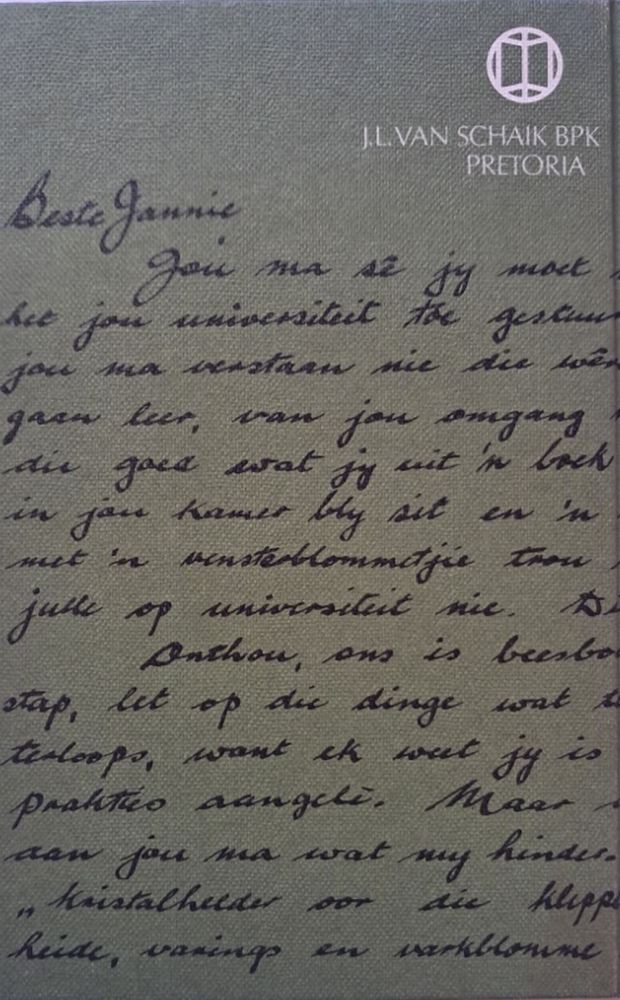 J.L. VAN SCHAIK BPK
PRETORIA
Beste Jannie
Jou ma sê jy moet
het jou universiteit toe gestuur
jou ma verstaan nie die wêr
gaan leer, van jou omgang
die goed wat jy uit 'n boek
in jou kamer bly sit en 'n
met 'n vensterblommetjie trou
julle op universiteit nie. Di
Onthou, ons is beesbo
stap, let op die dinge wat
terloops, want ek weet jy is
prakties aangelê. Maar
aan jou ma wat my hinder.
„Kristalhelder oor die klippe
heide, varings en varkblomme